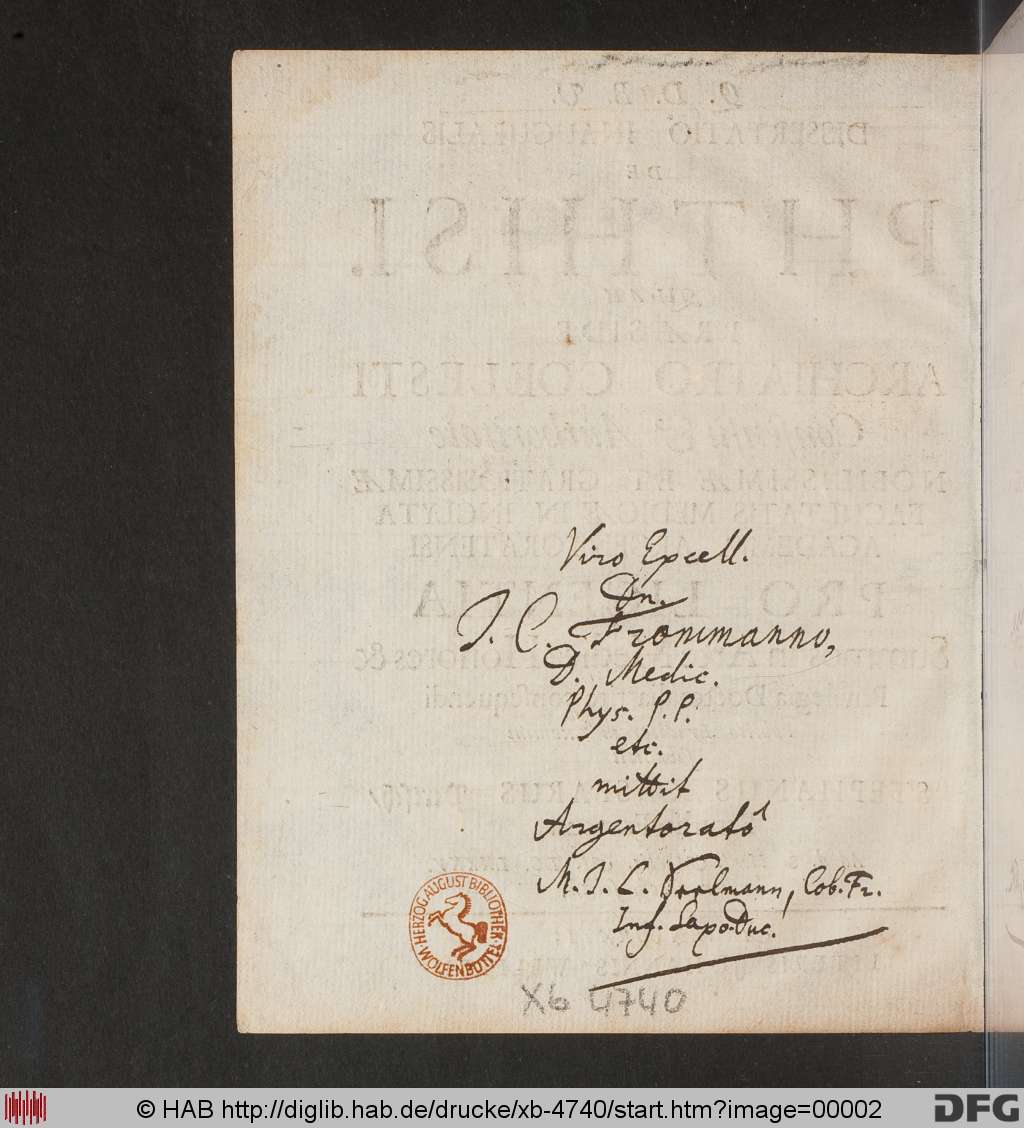 Viro Excell.
Dn.
J. C. Frommanno,
D. Medic.
Phys. P. P.
etc.
mittit
Argentorato
M. J. L. Cob. Fr.
Inf. Saxo-Duc.
HERZOG AUGUST BIBLIOTHEK
WOLFENBÜTTEL
Xb 4740
© HAB http://diglib.hab.de/drucke/xb-4740/start.htm?image=00002
DFG